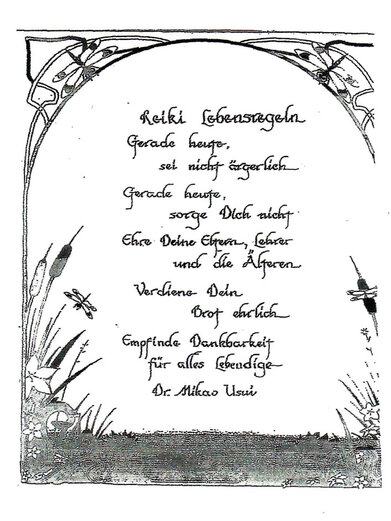 Reiki Lebensregeln
Gerade heute,
sei nicht ärgerlich
Gerade heute,
sorge Dich nicht
Ehre Deine Eltern, Lehrer
und die Älteren
Verdiene Dein
Brot ehrlich
Empfinde Dankbarkeit
für alles Lebendige
Dr. Mikao Usui